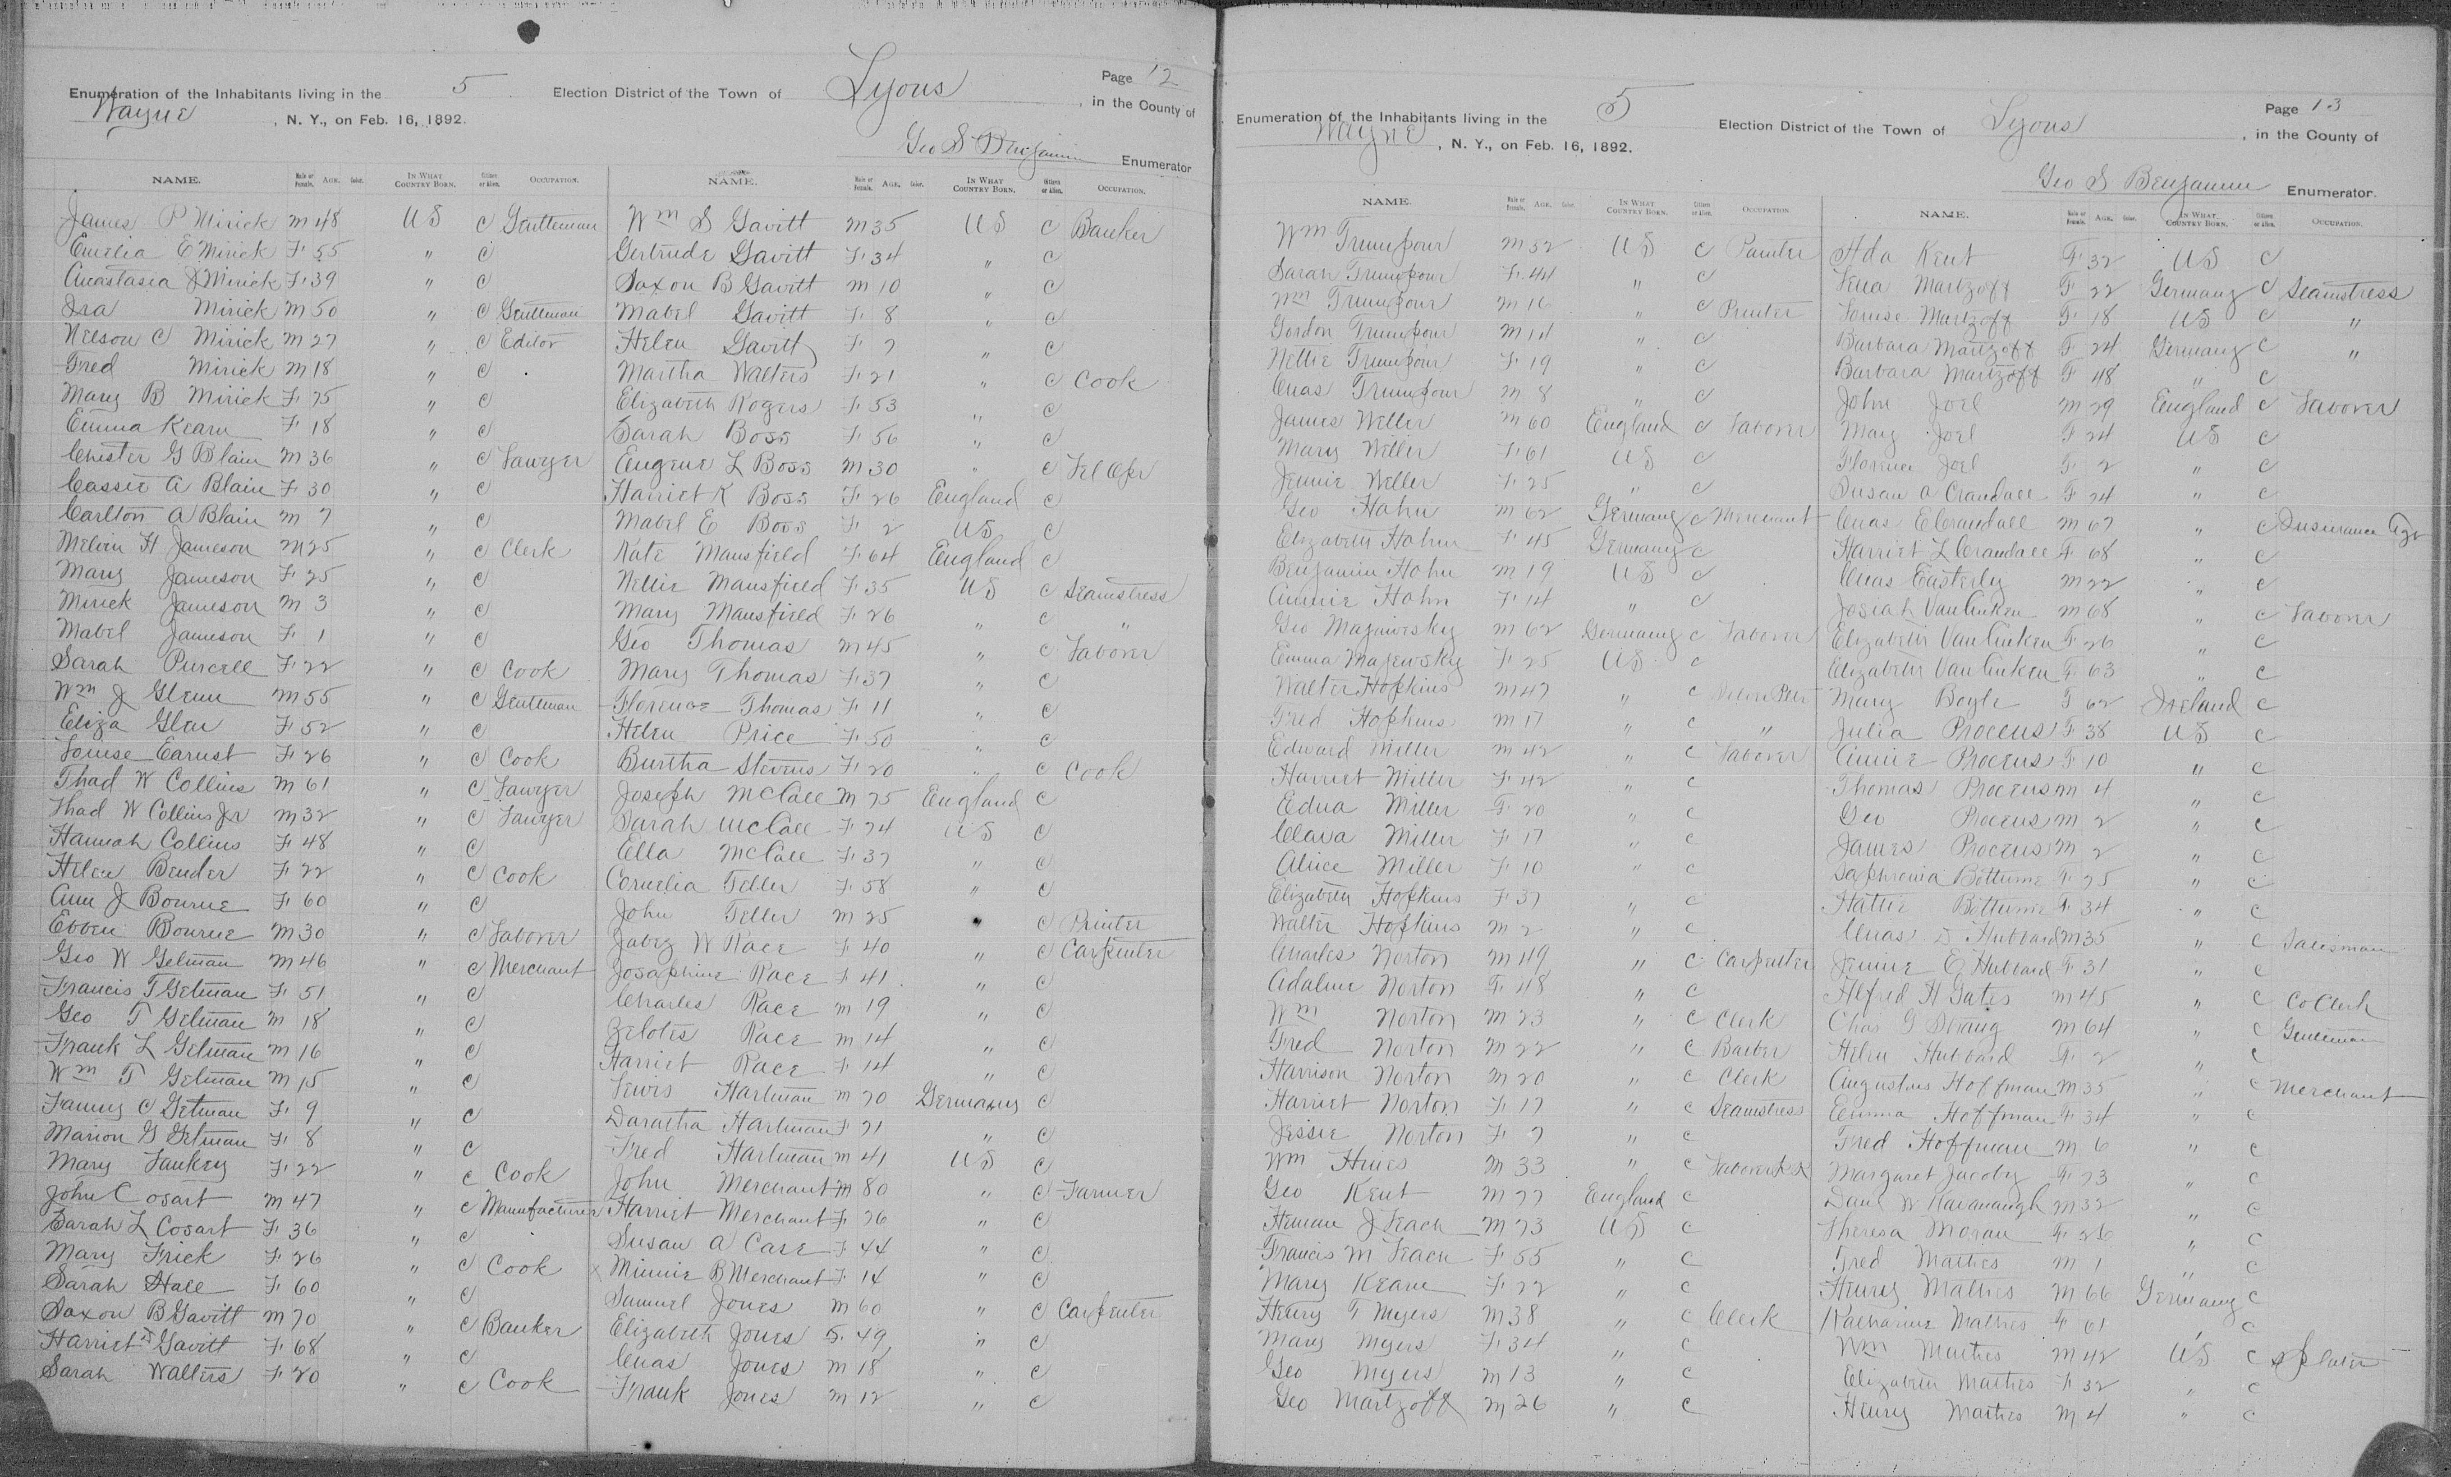 Page 12
Enumeration of the Inhabitants living in the 5 Election District of the Town of Lyons, in the County of
Wayne, N. Y., on Feb. 16, 1892.
Geo S Benjamin Enumerator
NAME. Male or Female. AGE. Color. IN WHAT COUNTRY BORN. Citizen or Alien. OCCUPATION.
James P Mirick m 48 US C Gentleman
Emelia E Mirick F 55 " C
Anastasia J Mirick F 39 " C
Ira Mirick m 50 " C Gentleman
Nelson C Mirick m 27 " C Editor
Fred Mirick m 18 " C
Mary B Mirick F 75 " C
Emma Kearn F 18 " C
Chester G Blain m 36 " C Lawyer
Cassie A Blain F 30 " C
Carlton A Blain m 7 " C
Melvin H Jameson m 25 " C Clerk
Mary Jameson F 25 " C
Mirick Jameson m 3 " C
Mabel Jameson F 1 " C
Sarah Purcell F 22 " C Cook
Wm J Glenn m 55 " C Gentleman
Eliza Glen F 52 " C
Louise Earnst F 26 " C Cook
Thad W Collins m 61 " C Lawyer
Thad W Collins Jr m 32 " C Lawyer
Hannah Collins F 48 " C
Helen Bender F 22 " C Cook
Ann J Bourne F 60 " C
Ebben Bourne m 30 " C Laborer
Geo W Getman m 46 " C Merchant
Francis T Getman F 51 " C
Geo T Getman m 18 " C
Frank L Getman m 16 " C
Wm T Getman m 15 " C
Fanny C Getman F 9 " C
Marion G Getman F 8 " C
Mary Lankey F 22 " C Cook
John Cosart m 47 " C Manufacturer
Sarah L Cosart F 36 " C
Mary Frick F 26 " C Cook
Sarah Hale F 60 " C
Saxon B Gavitt m 70 " C Banker
Harriet D Gavitt F 68 " C
Sarah Walters F 20 " C Cook
NAME. Male or Female. AGE. Color. IN WHAT COUNTRY BORN. Citizen or Alien. OCCUPATION.
Wm S Gavitt m 35 US C Banker
Gertrude Gavitt F 34 " C
Saxon B Gavitt m 10 " C
Mabel Gavitt F 8 " C
Helen Gavitt F 7 " C
Martha Walters F 21 " C Cook
Elizabeth Rogers F 53 " C
Sarah Boss F 56 " C
Eugene L Boss m 30 " C Tel Opr
Harriet K Boss F 26 England C
Mabel E Boss F 2 US C
Kate Mansfield F 64 England C
Nellie Mansfield F 35 US C Seamstress
Mary Mansfield F 26 " C "
Geo Thomas m 45 " C Laborer
Mary Thomas F 37 " C
Florence Thomas F 11 " C
Helen Price F 50 " C
Burtha Stevens F 20 " C Cook
Joseph McCall m 75 England C
Sarah McCall F 74 US C
Ella McCall F 37 " C
Cornelia Teller F 58 " C
John Teller m 25 " C Printer
Jabez W Race F 40 " C Carpenter
Josaphine Race F 41 " C
Charles Race m 19 " C
Zelotes Race m 14 " C
Harriet Race F 14 " C
Lewis Hartman m 70 Germany C
Daratha Hartman F 71 " C
Fred Hartman m 41 US C
John Merchant m 80 " C Farmer
Harriet Merchant F 76 " C
Susan A Case F 44 " C
x Minnie B Merchant F 14 " C
Samuel Jones m 60 " C Carpenter
Elizabeth Jones F 49 " C
Chas Jones m 18 " C
Frank Jones m 12 " C
Page 13
Enumeration of the Inhabitants living in the 5 Election District of the Town of Lyons, in the County of
Wayne, N. Y., on Feb. 16, 1892.
Geo S Benjamin Enumerator.
NAME. Male or Female. AGE. Color. IN WHAT COUNTRY BORN. Citizen or Alien. OCCUPATION
Wm Trumpour m 52 US C Painter
Sarah Trumpour F 44 " C
Wm Trumpour m 16 " C Printer
Gordon Trumpour m 14 " C
Nellie Trumpour F 19 " C
Chas Trumpour m 8 " C
James Weller m 60 England C Laborer
Mary Weller F 61 US C
Jennie Weller F 25 " C
Geo Hahn m 62 Germany C Merchant
Elizabeth Hahn F 45 Germany C
Benjamin Hahn m 19 US C
Annie Hahn F 14 " C
Geo Majewsky m 62 Germany C Laborer
Emma Majewsky F 25 US C
Walter Hopkins m 47 " C
Fred Hopkins m 17 " C "
Edward Miller m 42 " C Laborer
Harriet Miller F 42 " C
Edna Miller F 20 " C
Clara Miller F 17 " C
Alice Miller F 10 " C
Elizabeth Hopkins F 37 " C
Walter Hopkins m 2 " C
Charles Norton m 49 " C Carpenter
Adaline Norton F 48 " C
Wm Norton m 23 " C Clerk
Fred Norton m 22 " C Barber
Harrison Norton m 20 " C Clerk
Harriet Norton F 17 " C Seamstress
Jessie Norton F 7 " C
Wm Hines m 33 " C Laborer
Geo Kent m 77 England C
Heman J Leach m 73 US C
Francis M Leach F 55 " C
Mary Kearn F 22 " C
Henry F Myers m 38 " C Clerk
Mary Myers F 34 " C
Geo Myers m 13 " C
Geo Martzoff m 26 " C
NAME. Male or Female. AGE. Color. IN WHAT COUNTRY BORN. Citizen or Alien. OCCUPATION.
Ada Kent F 32 US C
Lena Martzoff F 22 Germany C Seamstress
Louise Martzoff F 18 US C "
Barbara Martzoff F 24 Germany C "
Barbara Martzoff F 48 " C
John Joel m 29 England C Laborer
Mary Joel F 24 US C
Florence Joel F 2 " C
Susan A Crandall F 24 " C
Chas E Crandall m 67 " C Insurance Agt
Harriet L Crandall F 68 " C
Chas Easterly m 22 " C
Josiah VanAuken m 68 " C Laborer
Elizabeth VanAuken F 26 " C
Elizabeth VanAuken F 63 " C
Mary Boyle F 62 Ireland C
Julia Proceus F 38 US C
Annie Proceus F 10 " C
Thomas Proceus m 4 " C
Geo Proceus m 2 " C
James Proceus m 2 " C
Saphronia Bottume F 75 " C
Hattie Bottume F 34 " C
Chas D Hubbard m 35 " C Salesman
Jennie E Hubbard F 31 " C
Alfred H Gates m 45 " C Co Clerk
Chas G Strang m 64 " C Gentleman
Helen Hubbard F 2 " C
Augustus Hoffman m 35 " C Merchant
Emma Hoffman F 34 " C
Fred Hoffman m 6 " C
Margaret Jacoby F 73 " C
Danl W Kavanaugh m 32 " C
Theresa Moran F 26 " C
Fred Mathes m 1 " C
Henry Mathes m 66 Germany C
Katharine Mathes F 61 C
Wm Mathes m 42 US C
Elizabeth Mathes F 32 " C
Henry Mathes m 4 " C